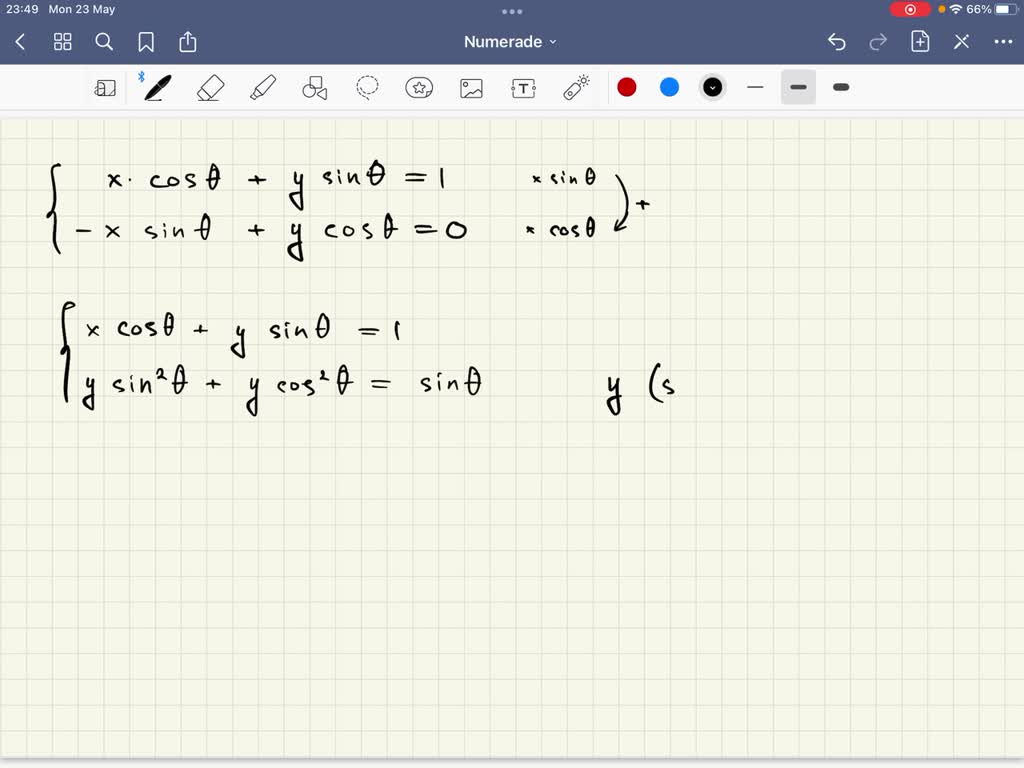 23:49 Mon 23 May 66%
Numerade
T
x · cosθ + y sinθ = 1 × sinθ
- x sinθ + y cosθ = 0 × cosθ +
x cosθ + y sinθ = 1
y sin²θ + y cos²θ = sinθ y (s